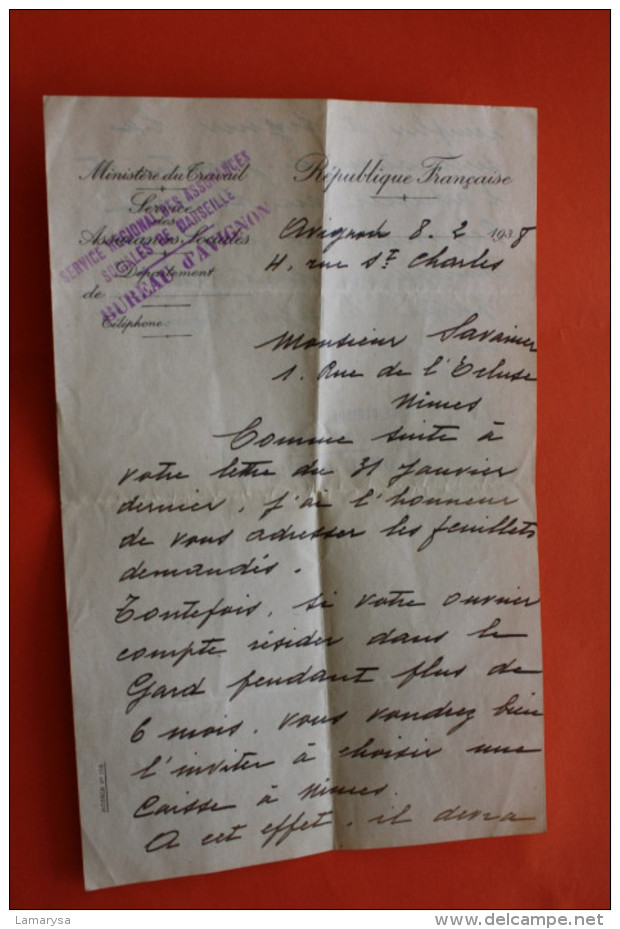 Ministère du Travail
Service
des
Assurances Sociales
Département
de
Téléphone:
SERVICE RÉGIONAL DES ASSURANCES
SOCIALES DE MARSEILLE
BUREAU d'AVIGNON
République Française
Avignon 8. 2 1938
4, rue St Charles
Monsieur Savanier
1. Rue de l'Ecluse
Nimes
Comme suite à
votre lettre du 31 Janvier
dernier, j'ai l'honneur
de vous adresser les feuillets
demandés.
Toutefois, si votre ouvrier
compte résider dans le
Gard pendant plus de
6 mois, vous voudrez bien
l'inviter à choisir une
Caisse à Nimes.
A cet effet, il devra
Lamarysa
http://www.delcampe.net